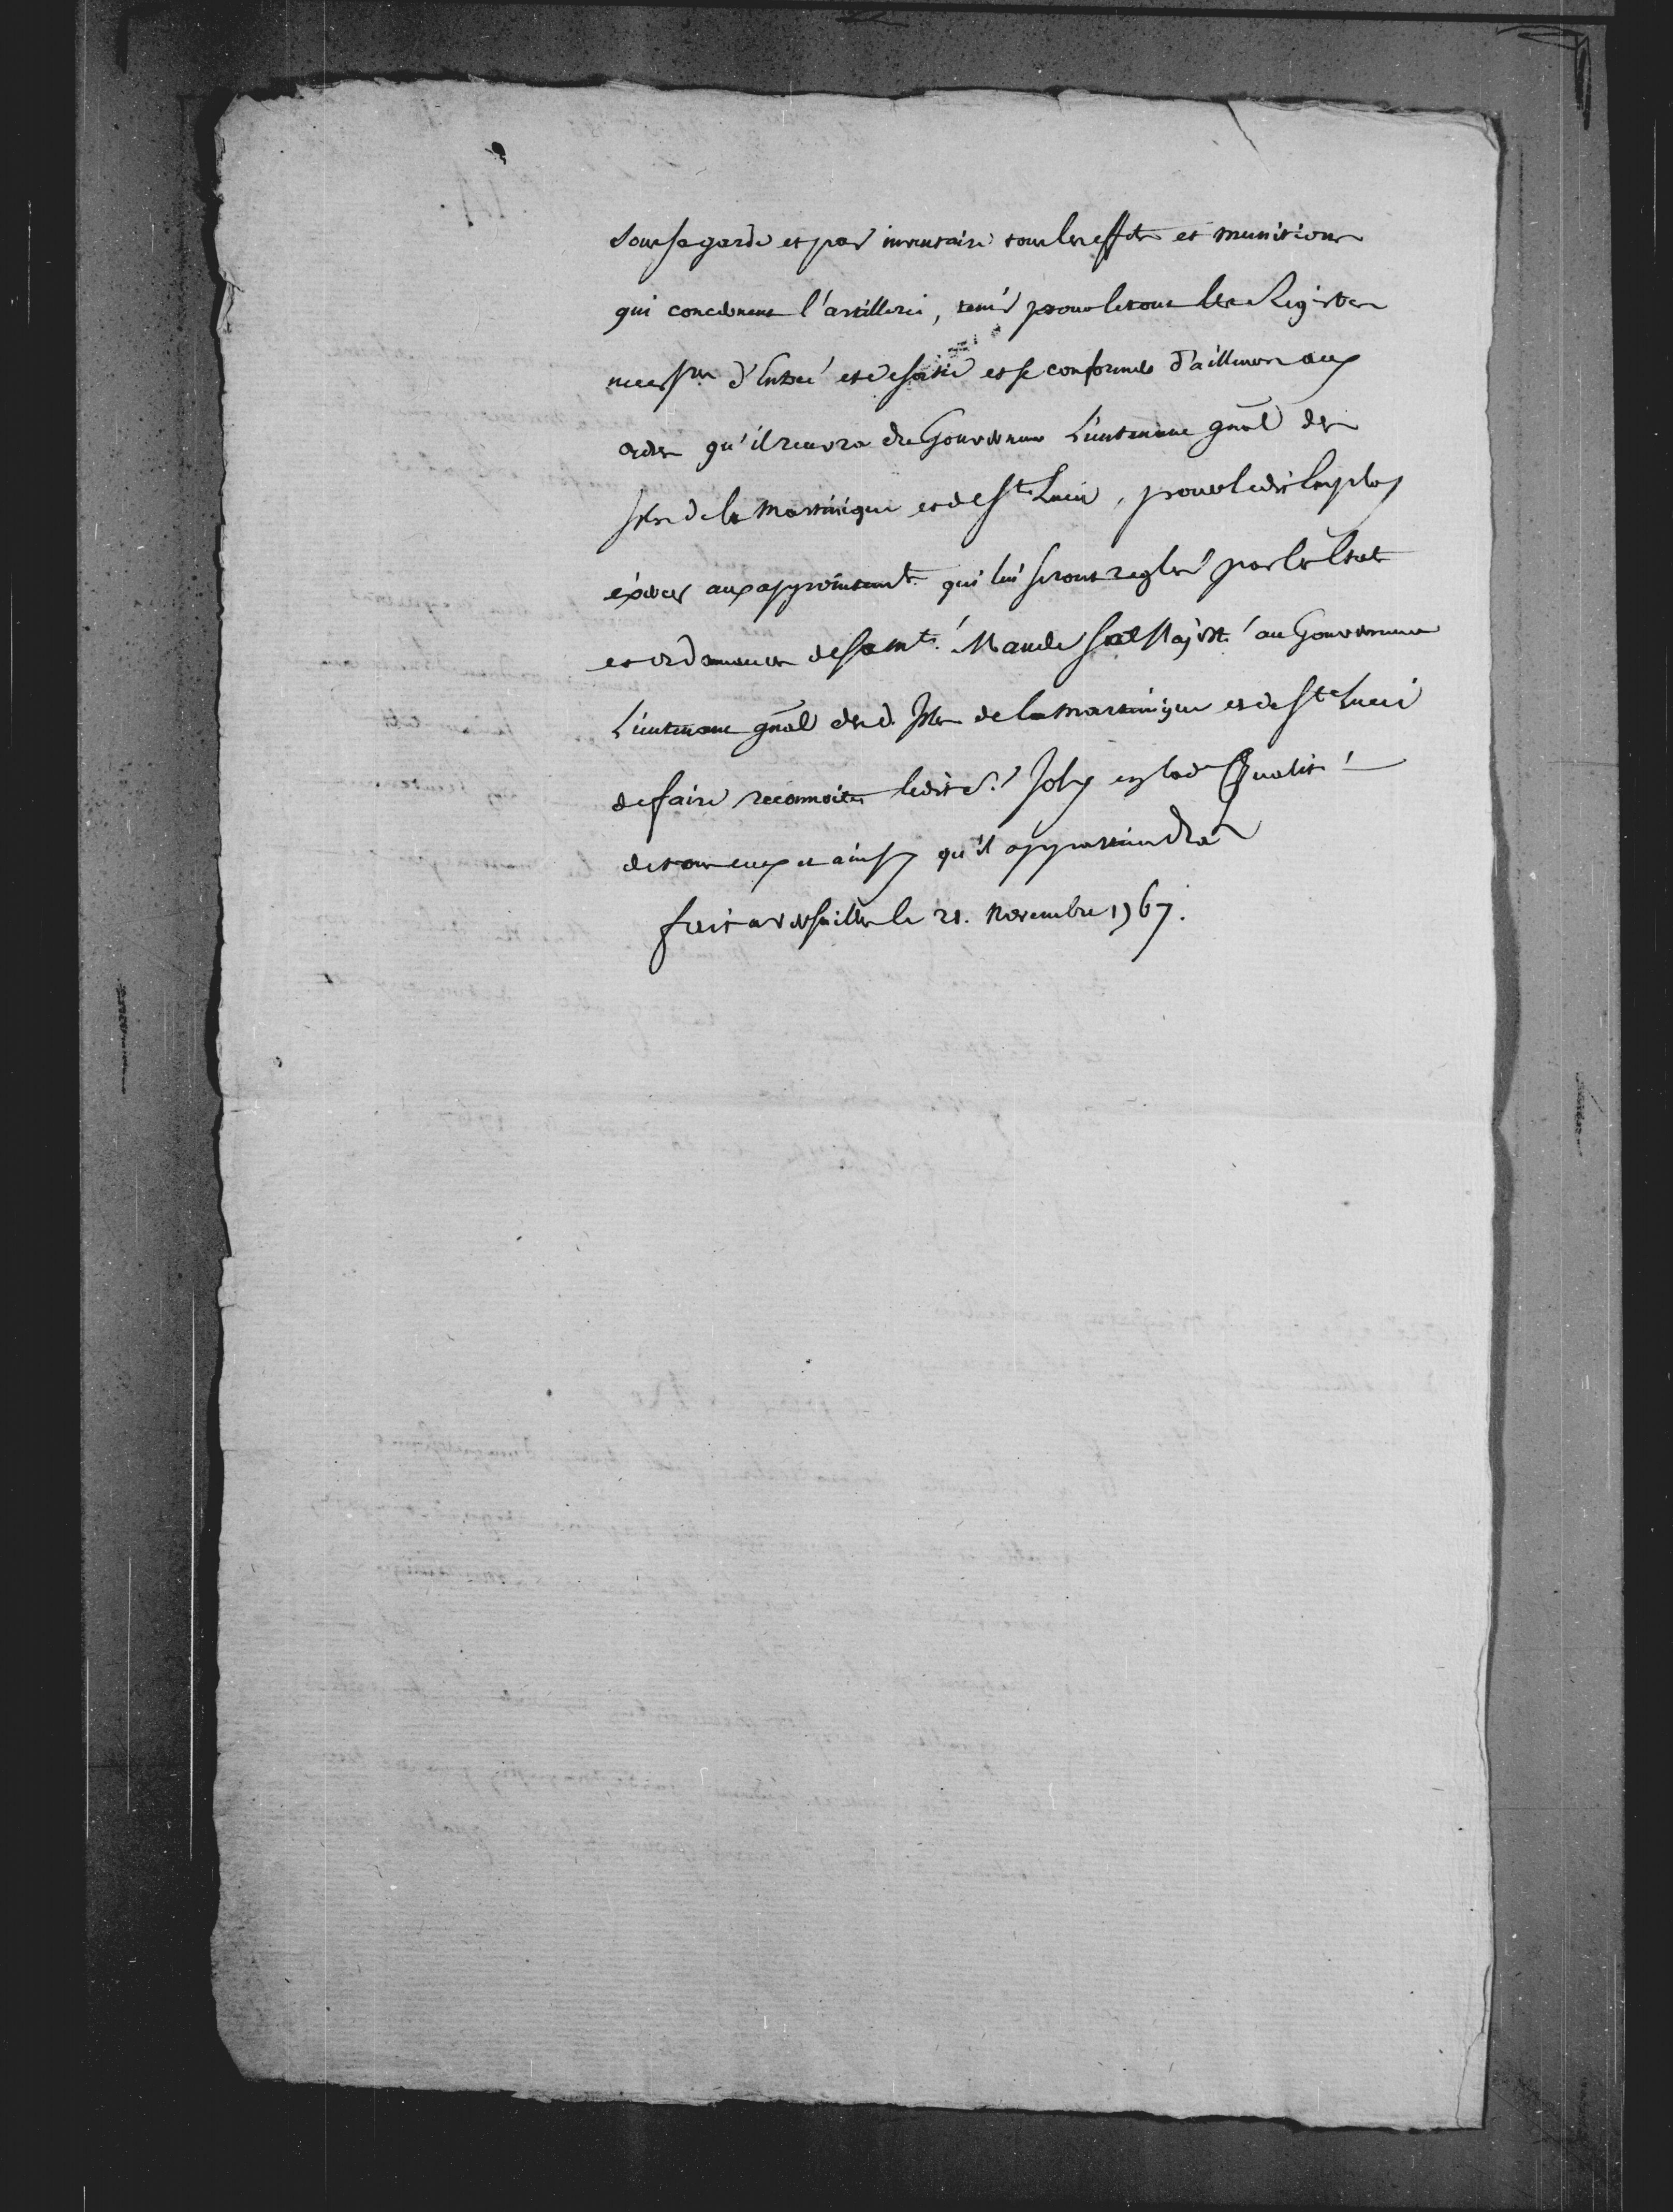 sous sa garde et par inventaire tous les effets et munitions
qui concernent l'artillerie, tenir pour le tout les Registres
necessres d'Entrée et de sortie et se conformer d'ailleurs aux
ordres qu'il recevra du Gouverneur Lieutenant gnâl des
Isles de la Martinique et de Ste Lucie, pour ledit Employ
éxercer aux appointements qui lui seront reglés par les Etats
et ordonnances de sa mté. Mande Sa Majesté au Gouverneur
Lieutenant gnâl desd. Isles de la Martinique et de Ste Lucie
de faire reconnoitre ledit S. Joly en lad. Qualité
de tous ceux et ainsy qu'il appartiendra
fait a Versailles le 21. Novembre 1767.